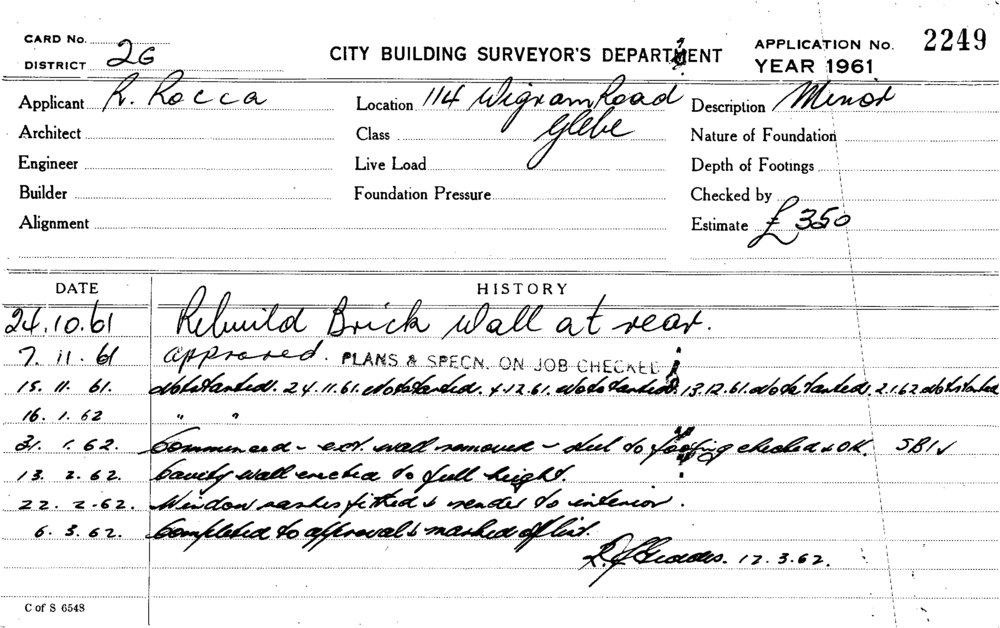 CARD No.
DISTRICT 26
CITY BUILDING SURVEYOR'S DEPARTMENT
APPLICATION No. 2249
YEAR 1961
Applicant R. Rocca
Location 114 Wigram Road
Glebe
Description Minor
Architect
Class
Nature of Foundation
Engineer
Live Load
Depth of Footings
Builder
Foundation Pressure
Checked by
Alignment
Estimate £350
DATE HISTORY
24.10.61 Rebuild Brick Wall at rear.
7. 11. 61 approved. PLANS & SPECN. ON JOB CHECKED
15. 11. 61. Not started. 24.11.61. Not started. 4.12.61. Not started 13.12.61. Not started. 2.1.62 Not started
16. 1. 62 " "
31. 1. 62. Commenced - ext. wall removed - steel to footing checked & OK.
13. 2. 62. Cavity wall erected to full height.
22. 2. 62. Window sashes fitted & render to interior.
6. 3. 62. Completed to approval & marked off list.
12.3.62.
C of S 6548